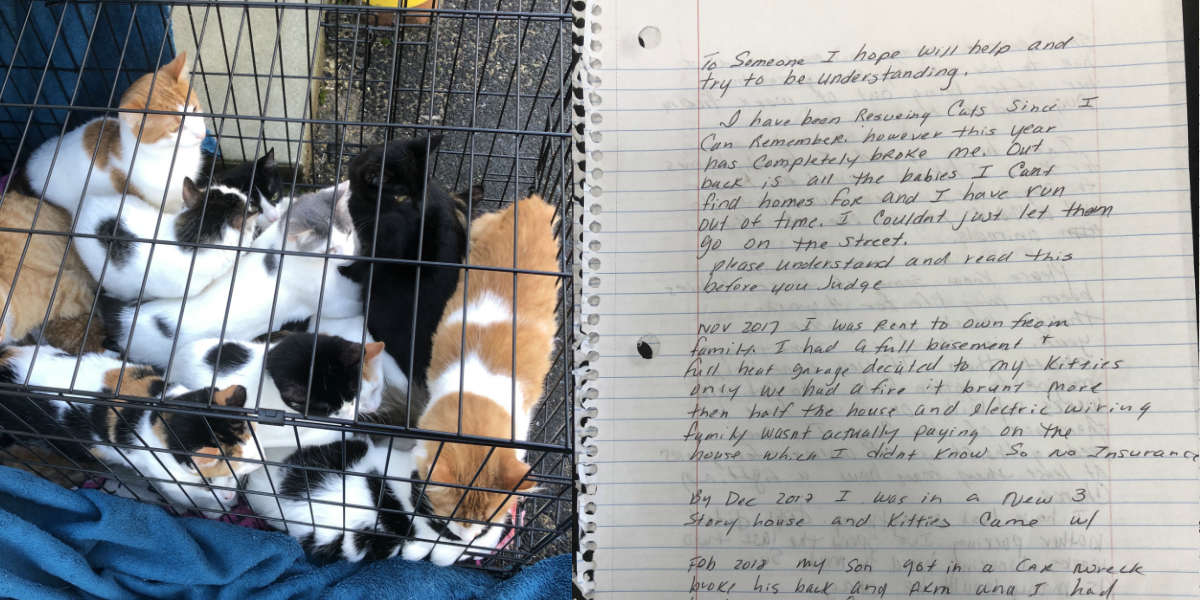 To Someone I hope will help and
try to be understanding.
I have been Resueing Cats Since I
Can Remember. however this year
has Completely broke me. Out
back is all the babies I Cant
find homes for and I have run
out of time. I Couldnt just let them
go on the street.
please understand and read this
before you Judge
Nov 2017 I was Rent to own from
family. I had a full basement +
full heat garage decided to my Kitties
only we had a fire it brunt more
then half the house and electric wiring
family wasnt actually paying on the
house which I didnt know So no Insurance
By Dec 2017 I was in a New 3
Story house and Kitties Came w/
Feb 2018 my Son got in a Car wreck
broke his back and ARm and I had